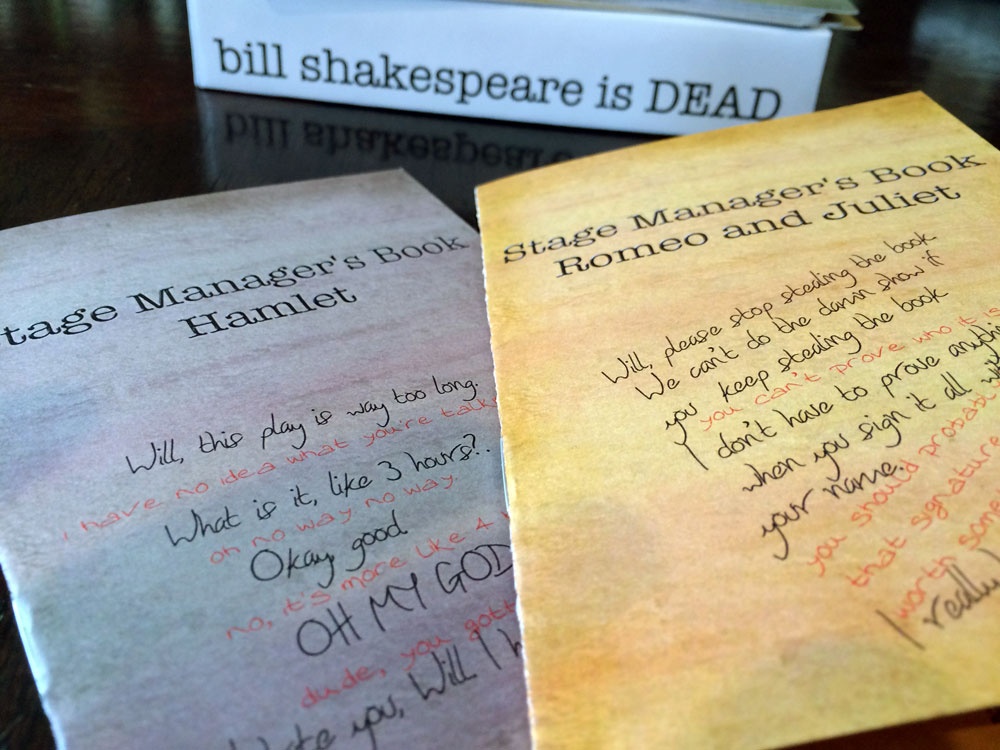 bill shakespeare is DEAD
bill shakespeare
tage Manager's Book
Hamlet
Will, this play is way too long.
i have no idea what you're talk
What is it, like 3 hours?.
oh no way no way.
Okay good
no, it's more like 4
OH MY GOD
dude, you gott
ate you, Will I h
Stage Manager's Book
Romeo and Juliet
Will, please stop stealing the book
We can't do the damn show if
you keep stealing the book
you can't prove who it is
I don't have to prove anythin
when you sign it all wi
your name.
you should probabl
that signature
worth some
I really